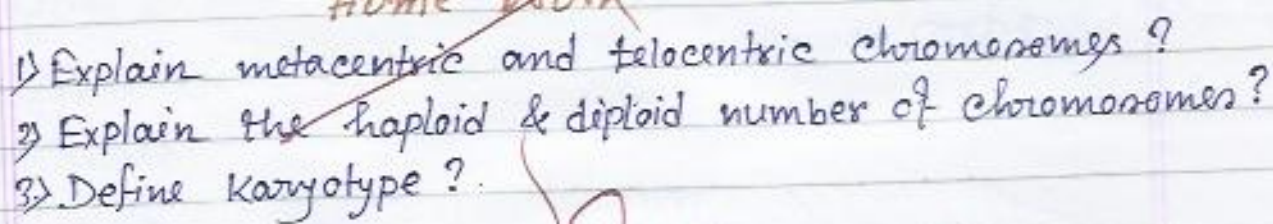 Home Work
1) Explain metacentric and telocentric chromosomes ?
2) Explain the haploid & diploid number of chromosomes ?
3) Define Karyotype ?